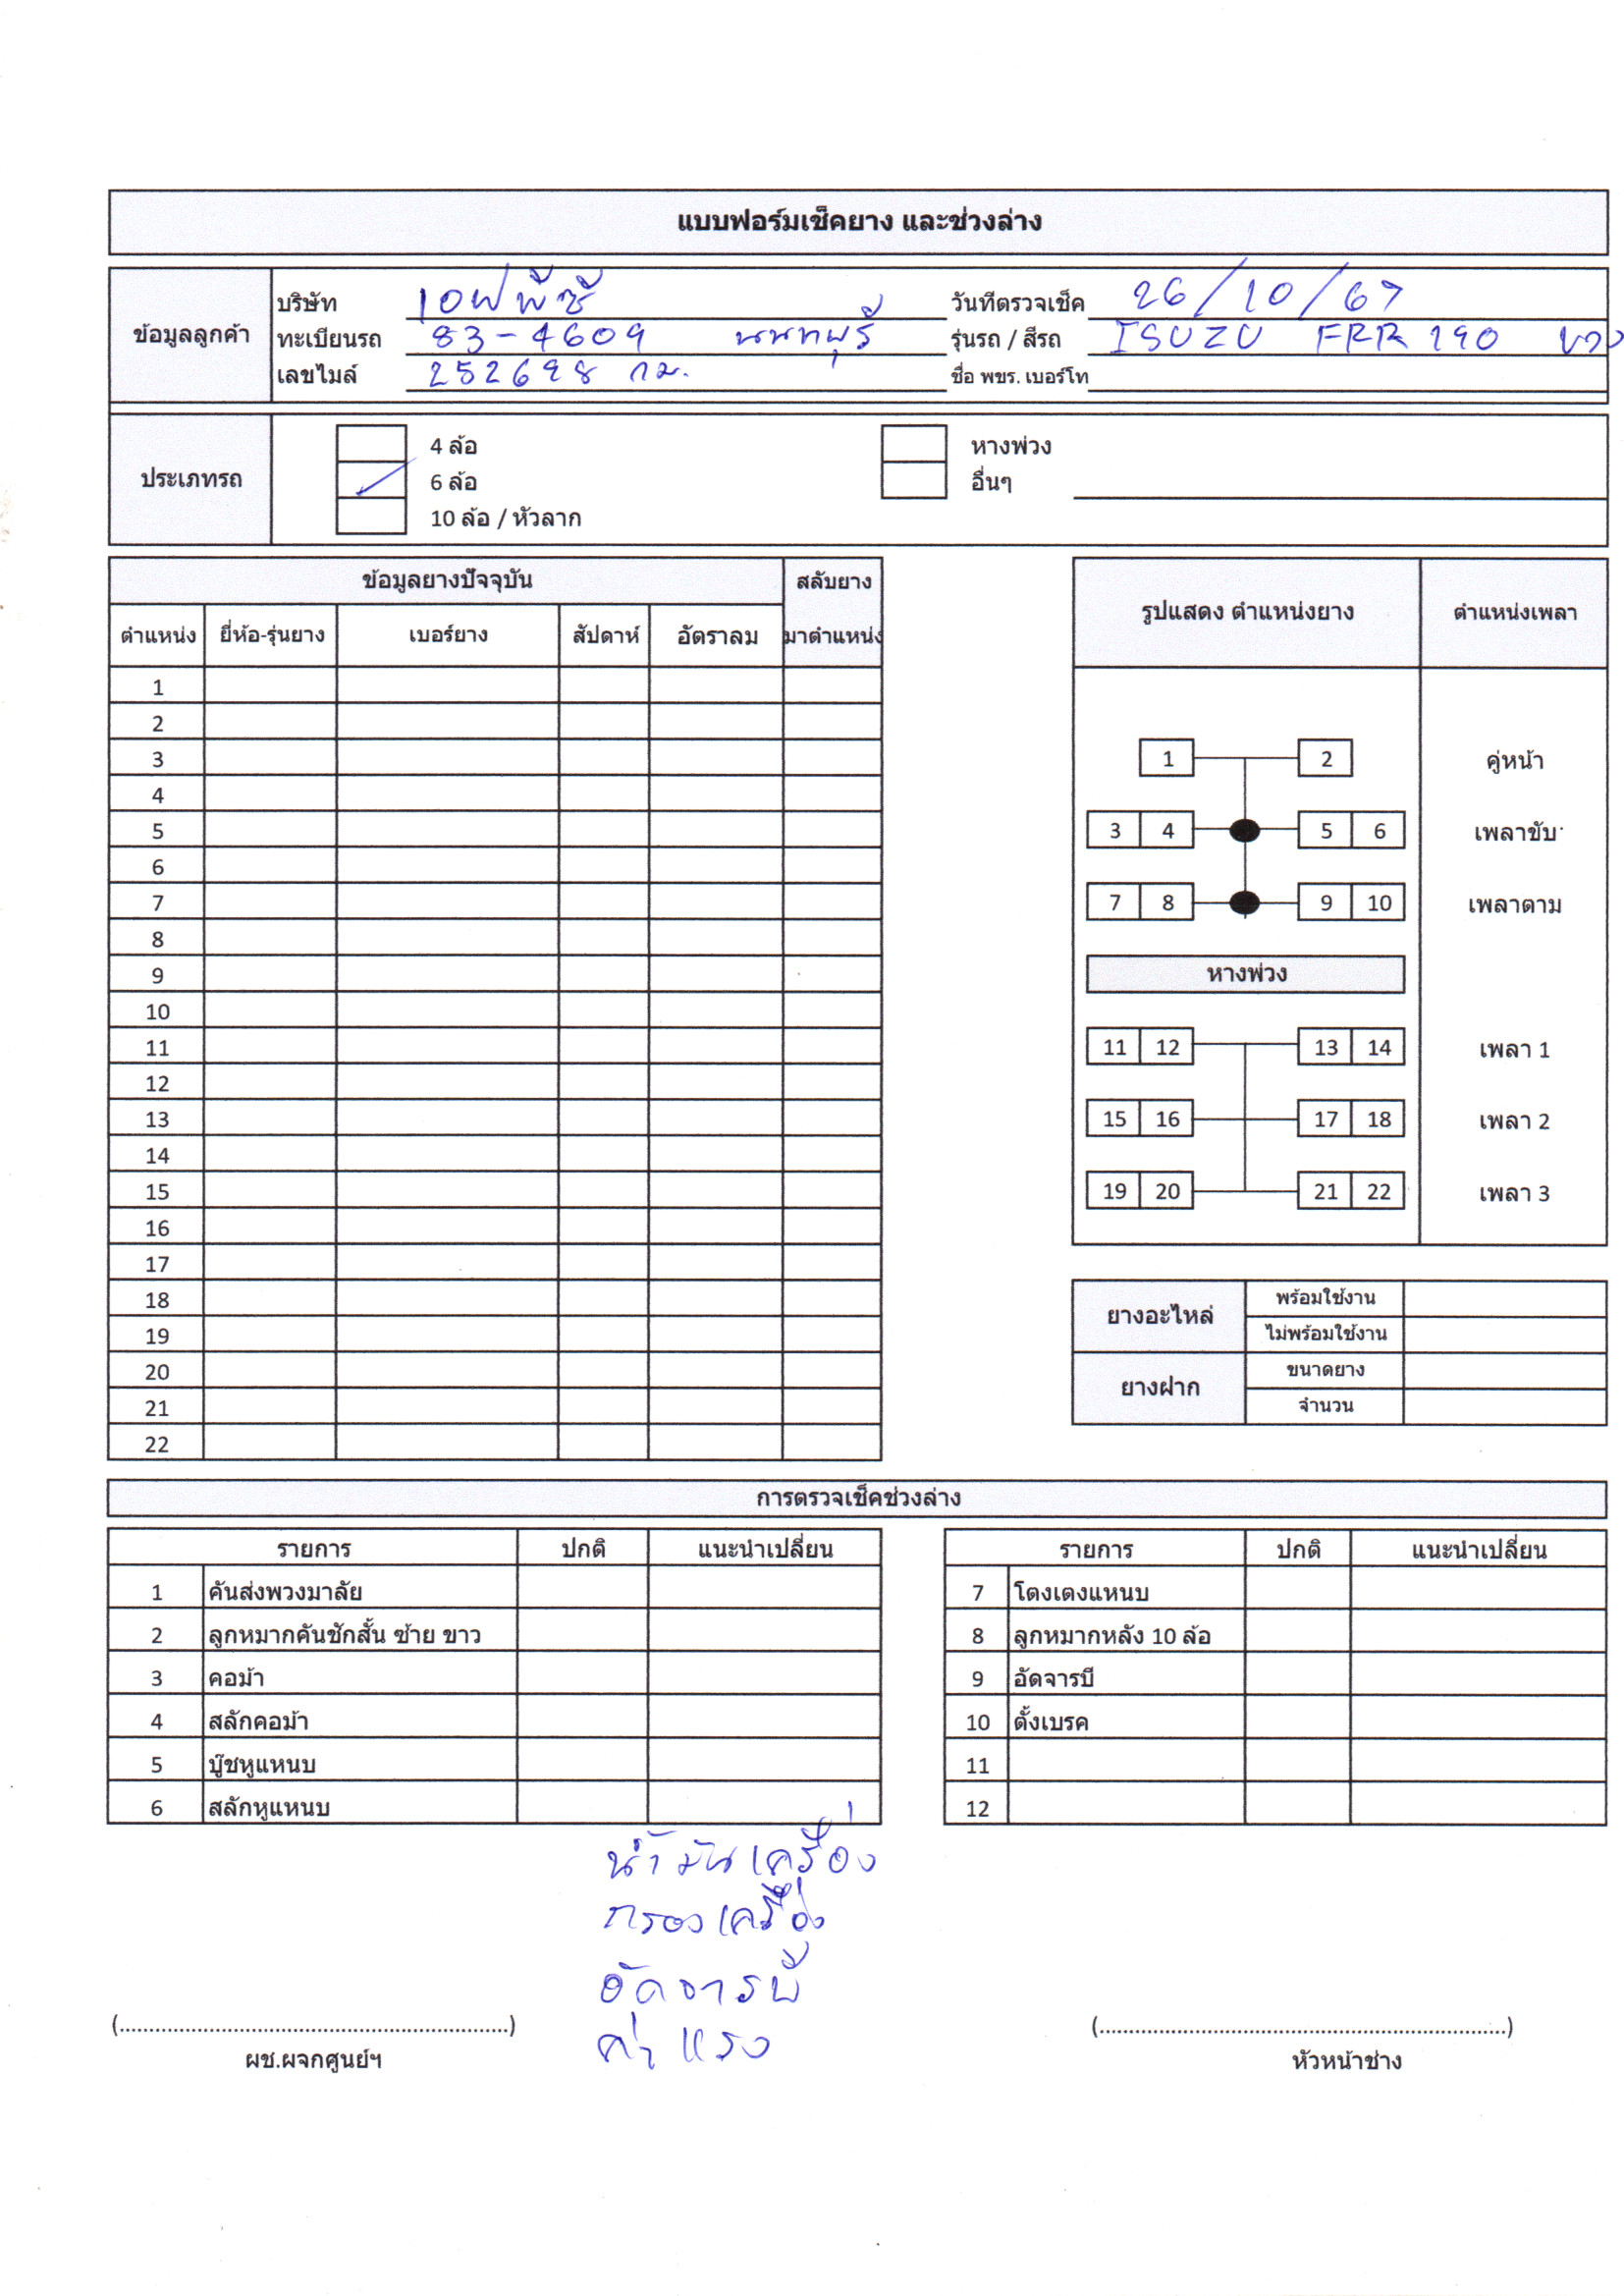 แบบฟอร์มเช็คยาง และช่วงล่าง
ข้อมูลลูกค้า
บริษัท เอฟพีซี วันที่ตรวจเช็ค 26/10/67
ทะเบียนรถ 83-4609 นนทบุรี รุ่นรถ / สีรถ ISUZU FRR 190 ขาว
เลขไมล์ 252698 กม. ชื่อ พขร. เบอร์โท
ประเภทรถ
4 ล้อ หางพ่วง
6 ล้อ อื่นๆ
10 ล้อ / หัวลาก
ข้อมูลยางปัจจุบัน สลับยาง
ตำแหน่ง ยี่ห้อ-รุ่นยาง เบอร์ยาง สัปดาห์ อัตราลม มาตำแหน่ง
1
2
3
4
5
6
7
8
9
10
11
12
13
14
15
16
17
18
19
20
21
22
รูปแสดง ตำแหน่งยาง ตำแหน่งเพลา
1 2 คู่หน้า
3 4 5 6 เพลาขับ
7 8 9 10 เพลาตาม
หางพ่วง
11 12 13 14 เพลา 1
15 16 17 18 เพลา 2
19 20 21 22 เพลา 3
ยางอะไหล่ พร้อมใช้งาน
ไม่พร้อมใช้งาน
ยางฝาก ขนาดยาง
จำนวน
การตรวจเช็คช่วงล่าง
รายการ ปกติ แนะนำเปลี่ยน
1 คันส่งพวงมาลัย
2 ลูกหมากคันชักสั้น ซ้าย ขาว
3 คอม้า
4 สลักคอม้า
5 บู๊ชหูแหนบ
6 สลักหูแหนบ
รายการ ปกติ แนะนำเปลี่ยน
7 โตงเตงแหนบ
8 ลูกหมากหลัง 10 ล้อ
9 อัดจารบี
10 ตั้งเบรค
11
12
น้ำมันเครื่อง
กรองเครื่อง
อัดจารบี
ค่าแรง
(..................................................................)
ผช.ผจกศูนย์ฯ
(..................................................................)
หัวหน้าช่าง